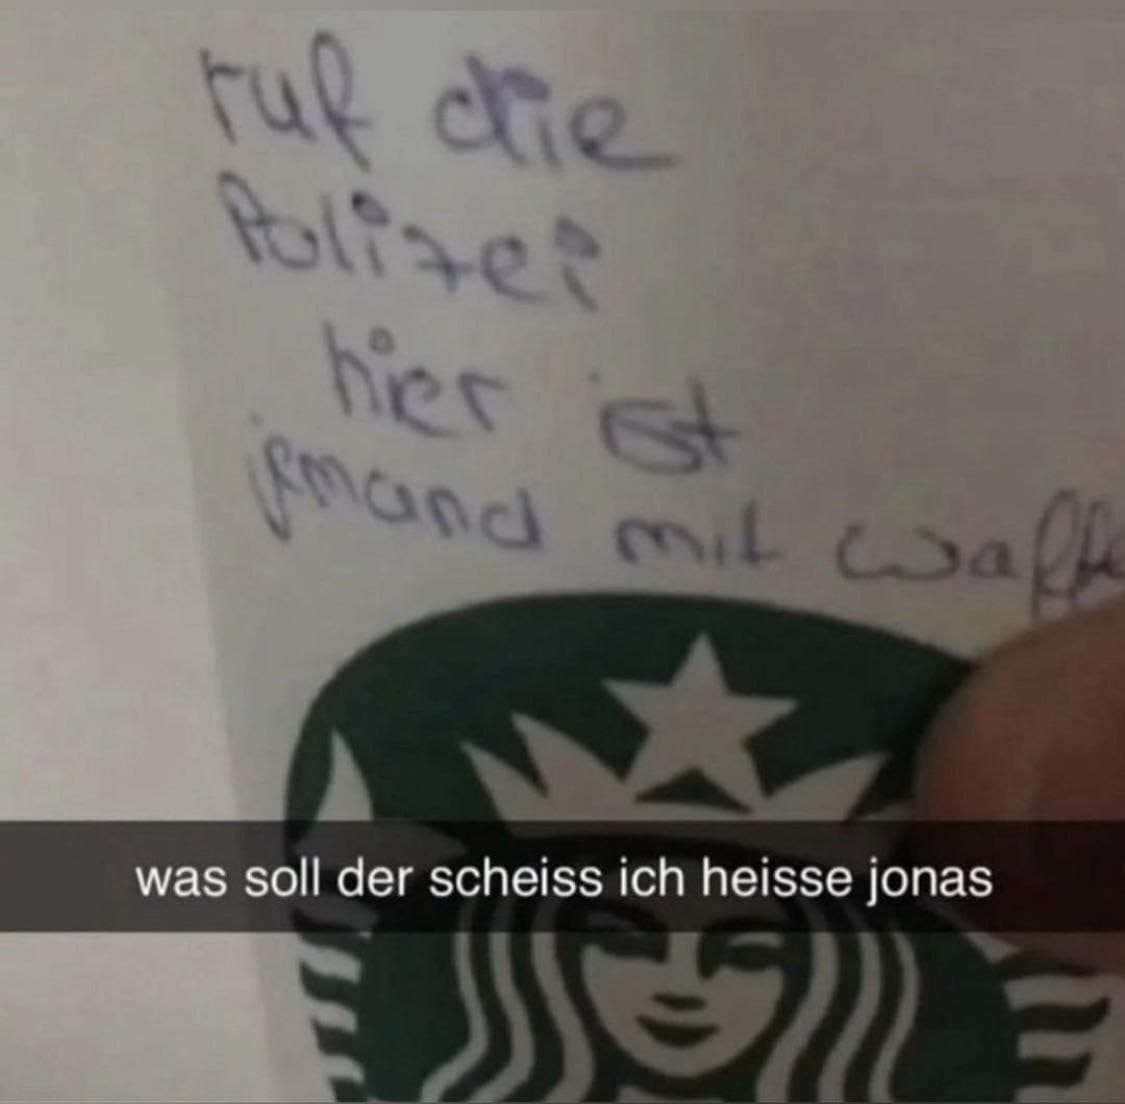 ruf die
Polizei
hier ist
jemand mit waffe
was soll der scheiss ich heisse jonas